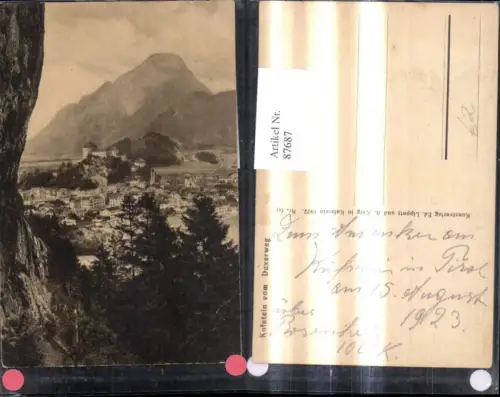 Artikel Nr.
87687
Kufstein vom Daxerweg
Kunstverlag Ed. Lippott und A. Karg in Kufstein 1922. Nr. 61
am
Kufstein in Tirol
am 15. August
1923.
100 K.